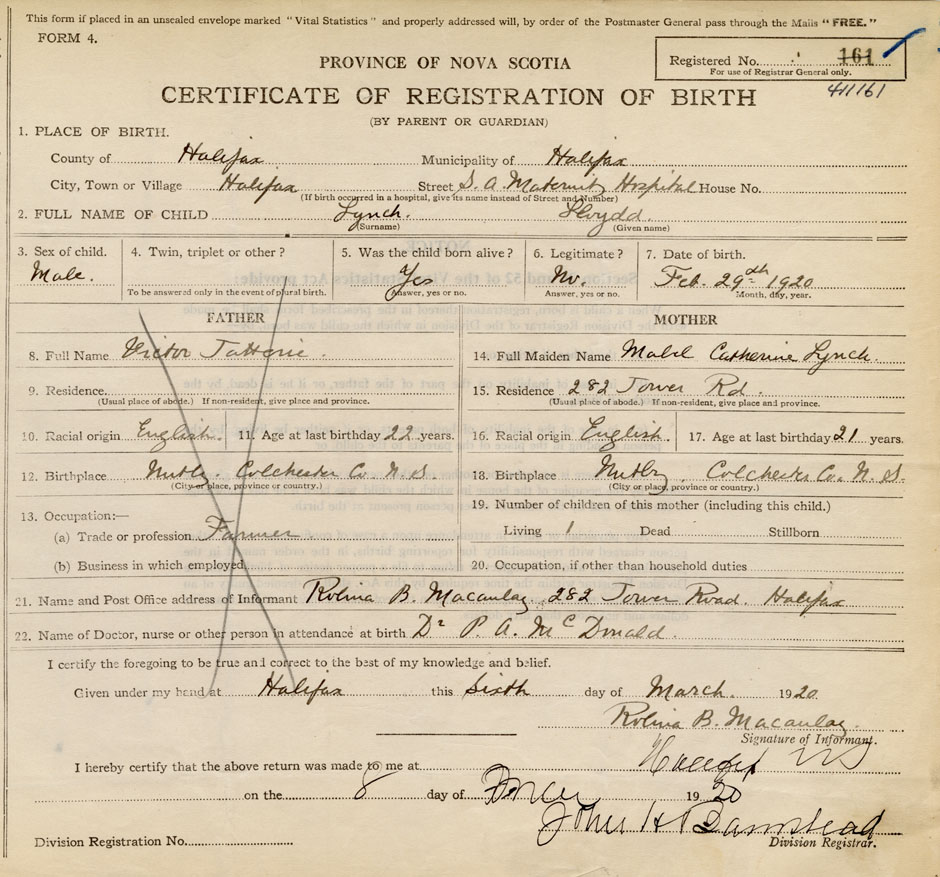 This form if placed in an unsealed envelope marked "Vital Statistics" and properly addressed will, by order of the Postmaster General pass through the Mails "FREE."
FORM 4.
PROVINCE OF NOVA SCOTIA
Registered No. 161
For use of Registrar General only.
411161
CERTIFICATE OF REGISTRATION OF BIRTH
(BY PARENT OR GUARDIAN)
1. PLACE OF BIRTH.
County of Halifax Municipality of Halifax
City, Town or Village Halifax Street S. A. Maternity Hospital House No.
(If birth occurred in a hospital, give its name instead of Street and Number)
2. FULL NAME OF CHILD Lynch. Lloydd.
(Surname) (Given name)
3. Sex of child. 4. Twin, triplet or other? 5. Was the child born alive? 6. Legitimate? 7. Date of birth.
Male. Yes No. Feb. 29th 1920
To be answered only in the event of plural birth. Answer, yes or no. Answer, yes or no. Month, day, year.
FATHER MOTHER
8. Full Name Victor 14. Full Maiden Name Mabel Catherine Lynch.
9. Residence. 15. Residence 282 Tower Rd.
(Usual place of abode.) If non-resident, give place and province. (Usual place of abode.) If non-resident, give place and province.
10. Racial origin English. 11. Age at last birthday 22 years. 16. Racial origin English. 17. Age at last birthday 21 years.
12. Birthplace Colchester Co. N. S. 18. Birthplace Colchester Co. N. S.
(City or place, province or country.) (City or place, province or country.)
13. Occupation:— 19. Number of children of this mother (including this child.)
(a) Trade or profession. Farmer Living 1 Dead Stillborn
(b) Business in which employed 20. Occupation, if other than household duties
21. Name and Post Office address of Informant Rolina B. Macaulay, 282 Tower Road. Halifax
22. Name of Doctor, nurse or other person in attendance at birth Dr P. A. McDonald.
I certify the foregoing to be true and correct to the best of my knowledge and belief.
Given under my hand at Halifax this Sixth day of March. 1920
Rolina B. Macaulay.
Signature of Informant.
I hereby certify that the above return was made to me at Halifax NS
on the 8 day of 1920
John H Barnstead
Division Registration No. Division Registrar.